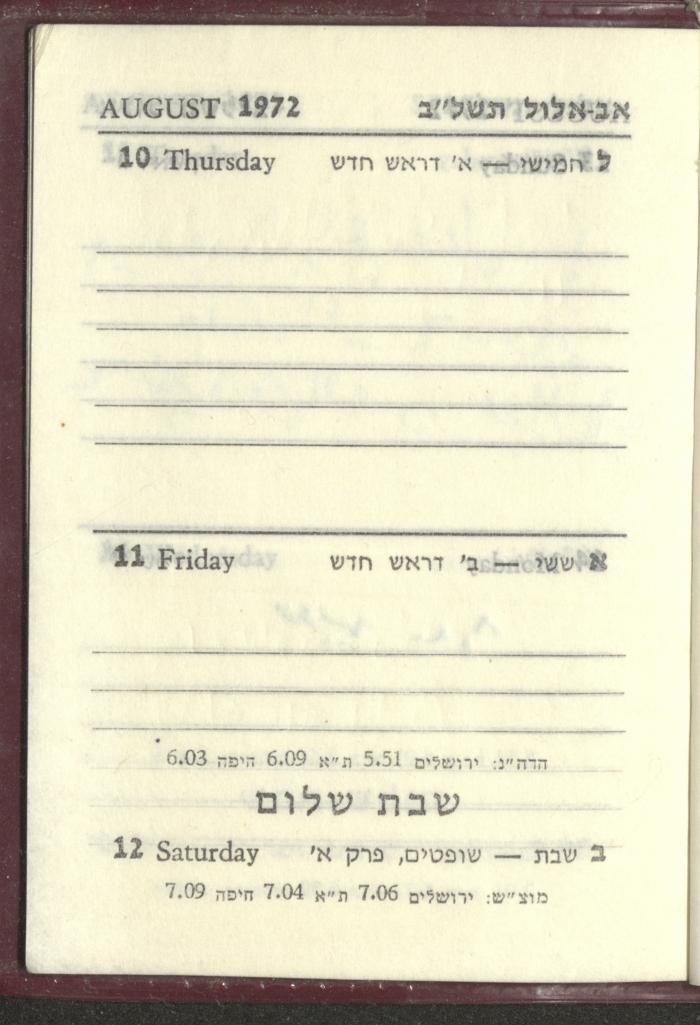 AUGUST 1972 אב-אלול תשל״ב
10 Thursday ל חמישי — א׳ דראש חדש
11 Friday א ששי — ב׳ דראש חדש
הדה״נ: ירושלים 5.51 ת״א 6.09 חיפה 6.03
שבת שלום
12 Saturday ב שבת — שופטים, פרק א׳
מוצ״ש: ירושלים 7.06 ת״א 7.04 חיפה 7.09